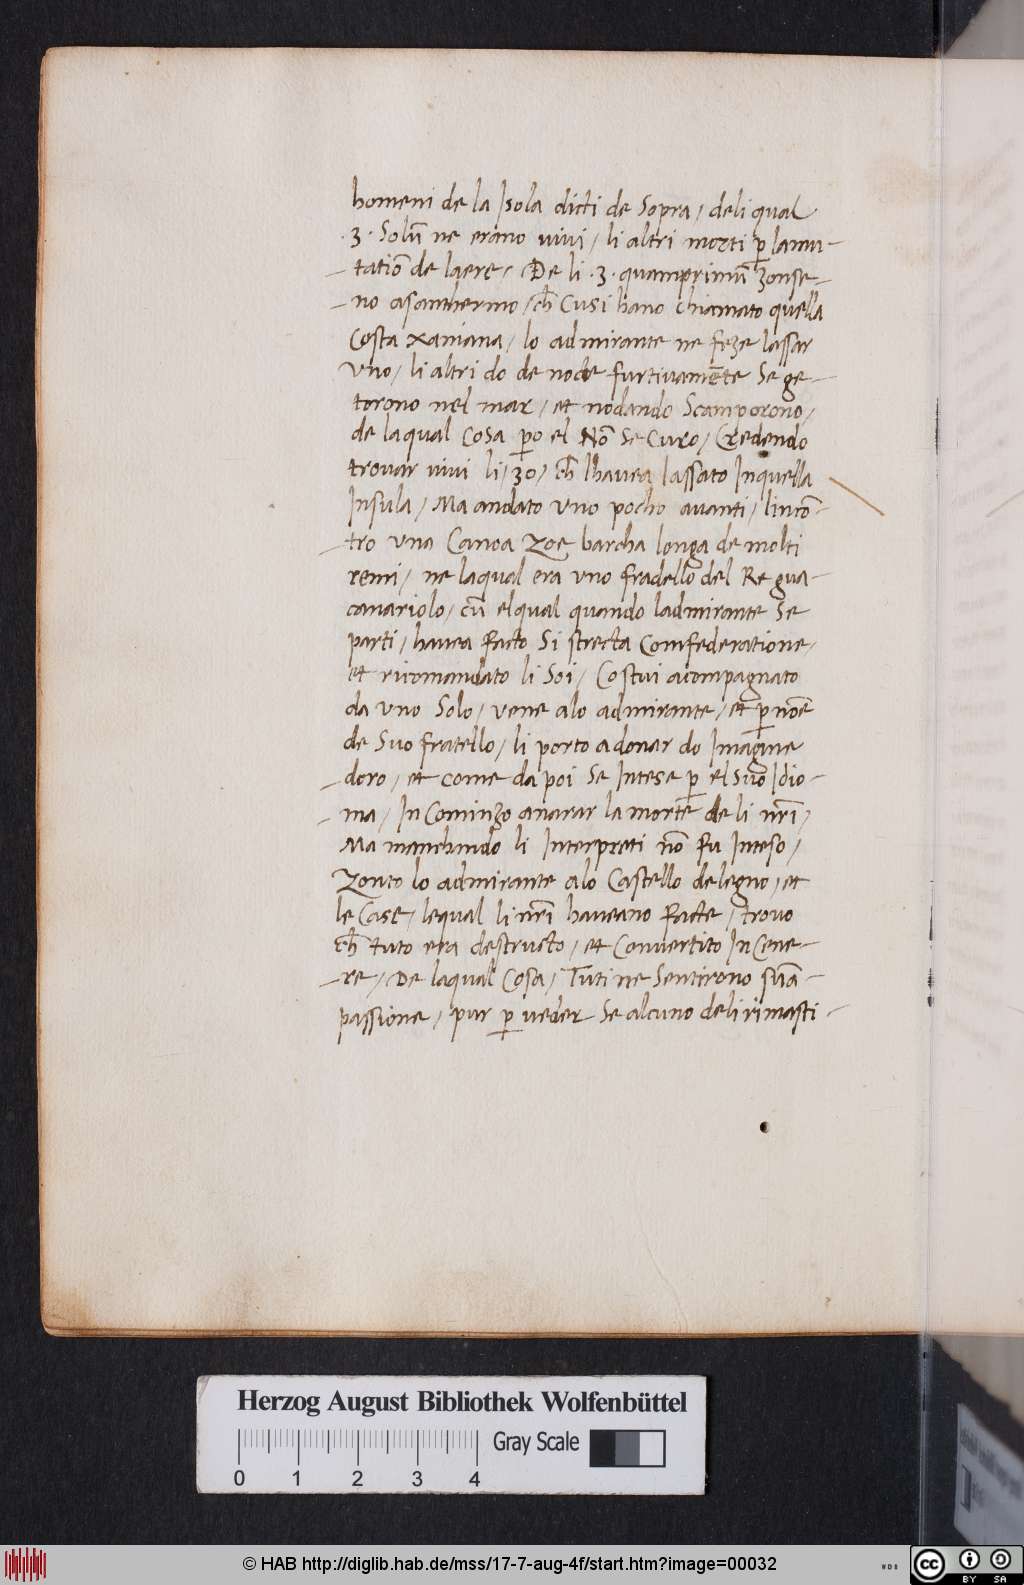 homeni de la Isola dicti de Sopra / deli qual
·3· Solũ ne erano vivi / li altri morti p̱ lamu-
tatiõ de laere / De li ·3· quamprimũ zonse-
no asanthermo / ch̃ Cusi hano chiamato quella
Costa xamana / lo admirante ne feze lassar
vno / li altri do de nocte furtivamẽte Se ge-
torono nel mar / et nodando Scamporono /
de laqual Cosa p̱o el Nõ Se Curo / Credendo
trovar vivi li / 30 / ch̃ lhavea lassato Inquella
Insula / Ma andato vno pocho avanti / lincõ-
tro vna Canoa zoe barcha longa de molti
remi / ne laqual era vno fradello del Re gua-
canariolo / cũ elqual quando ladmirante Se
parti / havea facto Si strecta Comfederatione /
et ricomandato li Soi / Costui acompagnato
da vno Solo / vene alo admirante / et p̱ nõe
de Suo fratello / li porto adonar do Imagine
doro / et come da poi Se Intese p̱ el Suo Idio-
ma / In Cominzo anarar la morte de li nr̃i /
Ma manchando li Interpreti nõ fu Inteso /
Zonto lo admirante alo Castello delegno / et
le Case / lequal li nr̃i haveano facte / trovo
ch̃ tuto era destructo / et Convertito In Cene-
re / De laqual Cosa / Tuti ne Sentirono sũa
passione / pur p̱ veder Se alcuno deli rimasti
Herzog August Bibliothek Wolfenbüttel
0 1 2 3 4
Gray Scale
© HAB http://diglib.hab.de/mss/17-7-aug-4f/start.htm?image=00032
WDB
cc BY SA